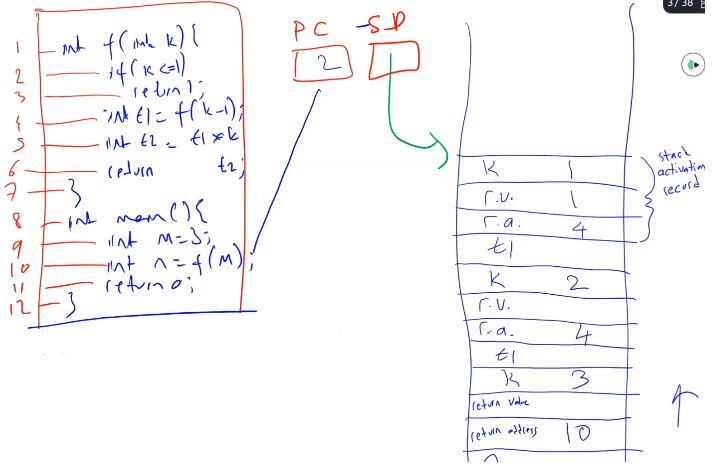 3 / 38
PC SP
2
1 int f(int k){
2 if(k<=1)
3 return 1;
4 int t1 = f(k-1);
5 int t2 = t1*k
6 return t2;
7 }
8 int main(){
9 int m=3;
10 int n=f(m);
11 return 0;
12 }
K 1
r.v. 1
r.a. 4
t1
K 2
r.v.
r.a. 4
t1
K 3
return value
return address 10
stack
activation
record